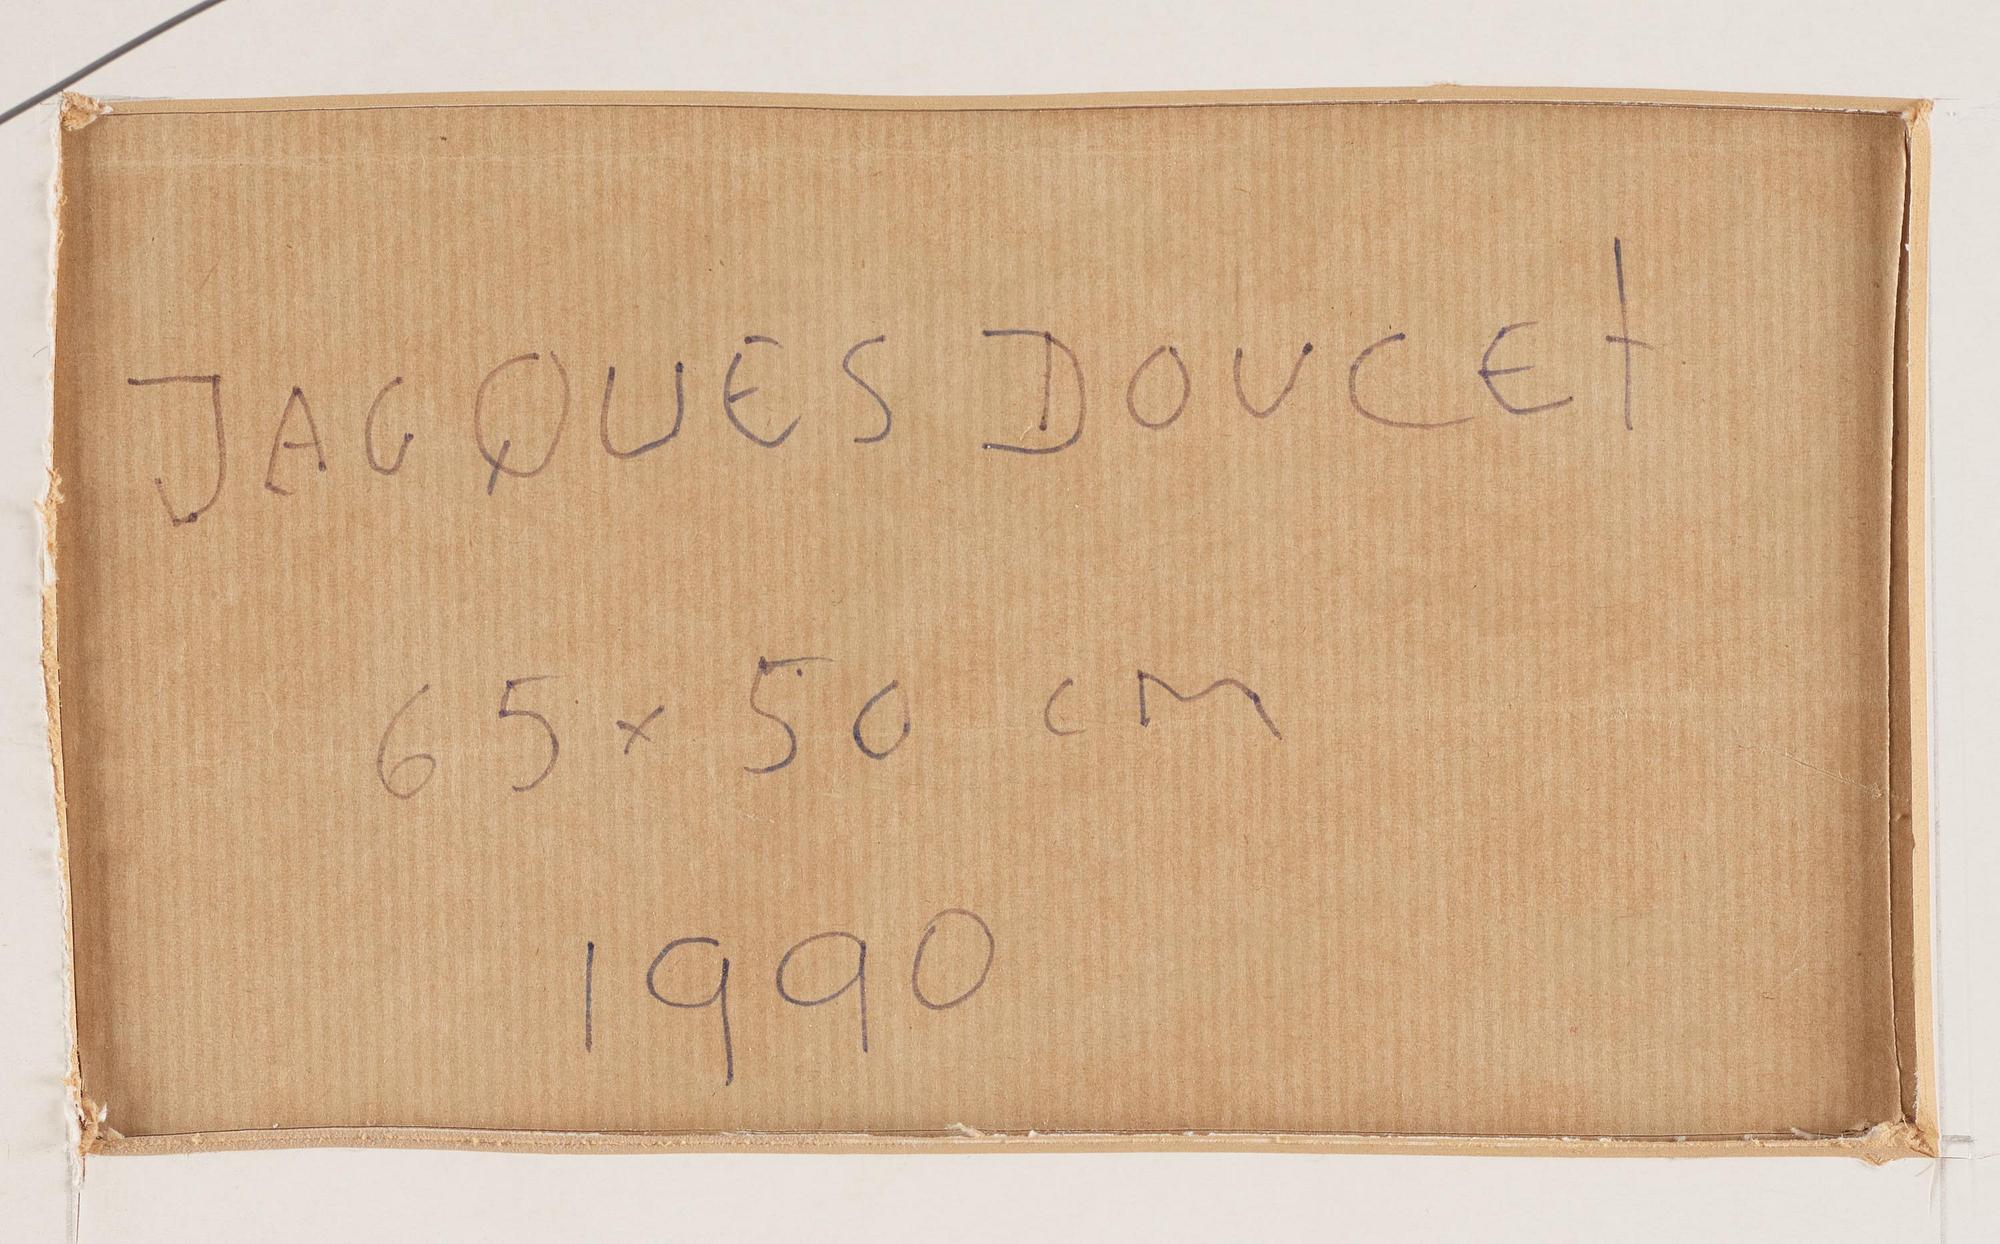 JACQUES DOUCEt
65 x 50 cm
1990